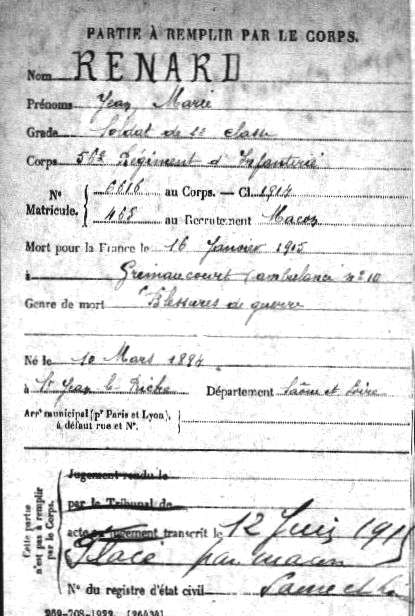 PARTIE À REMPLIR PAR LE CORPS.
Nom RENARD
Prénoms Jean Marie
Grade Soldat de 2e classe
Corps 56e Régiment d'Infanterie
N° Matricule. { 6616 au Corps. — Cl. 1914
465 au Recrutement Macon
Mort pour la France le 16 Janvier 1915
à Grimaucourt (ambulance n° 10
Genre de mort Blessures de guerre
Né le 10 Mars 1894
à St Jean le Priche Département Saône et Loire
Arrt municipal (pr Paris et Lyon), à défaut rue et N°.
Cette partie n'est pas à remplir par le Corps.
Jugement rendu le
par le Tribunal de
acte ou jugement transcrit le 12 Juin 191
Flacé par macon
N° du registre d'état civil Saone et L